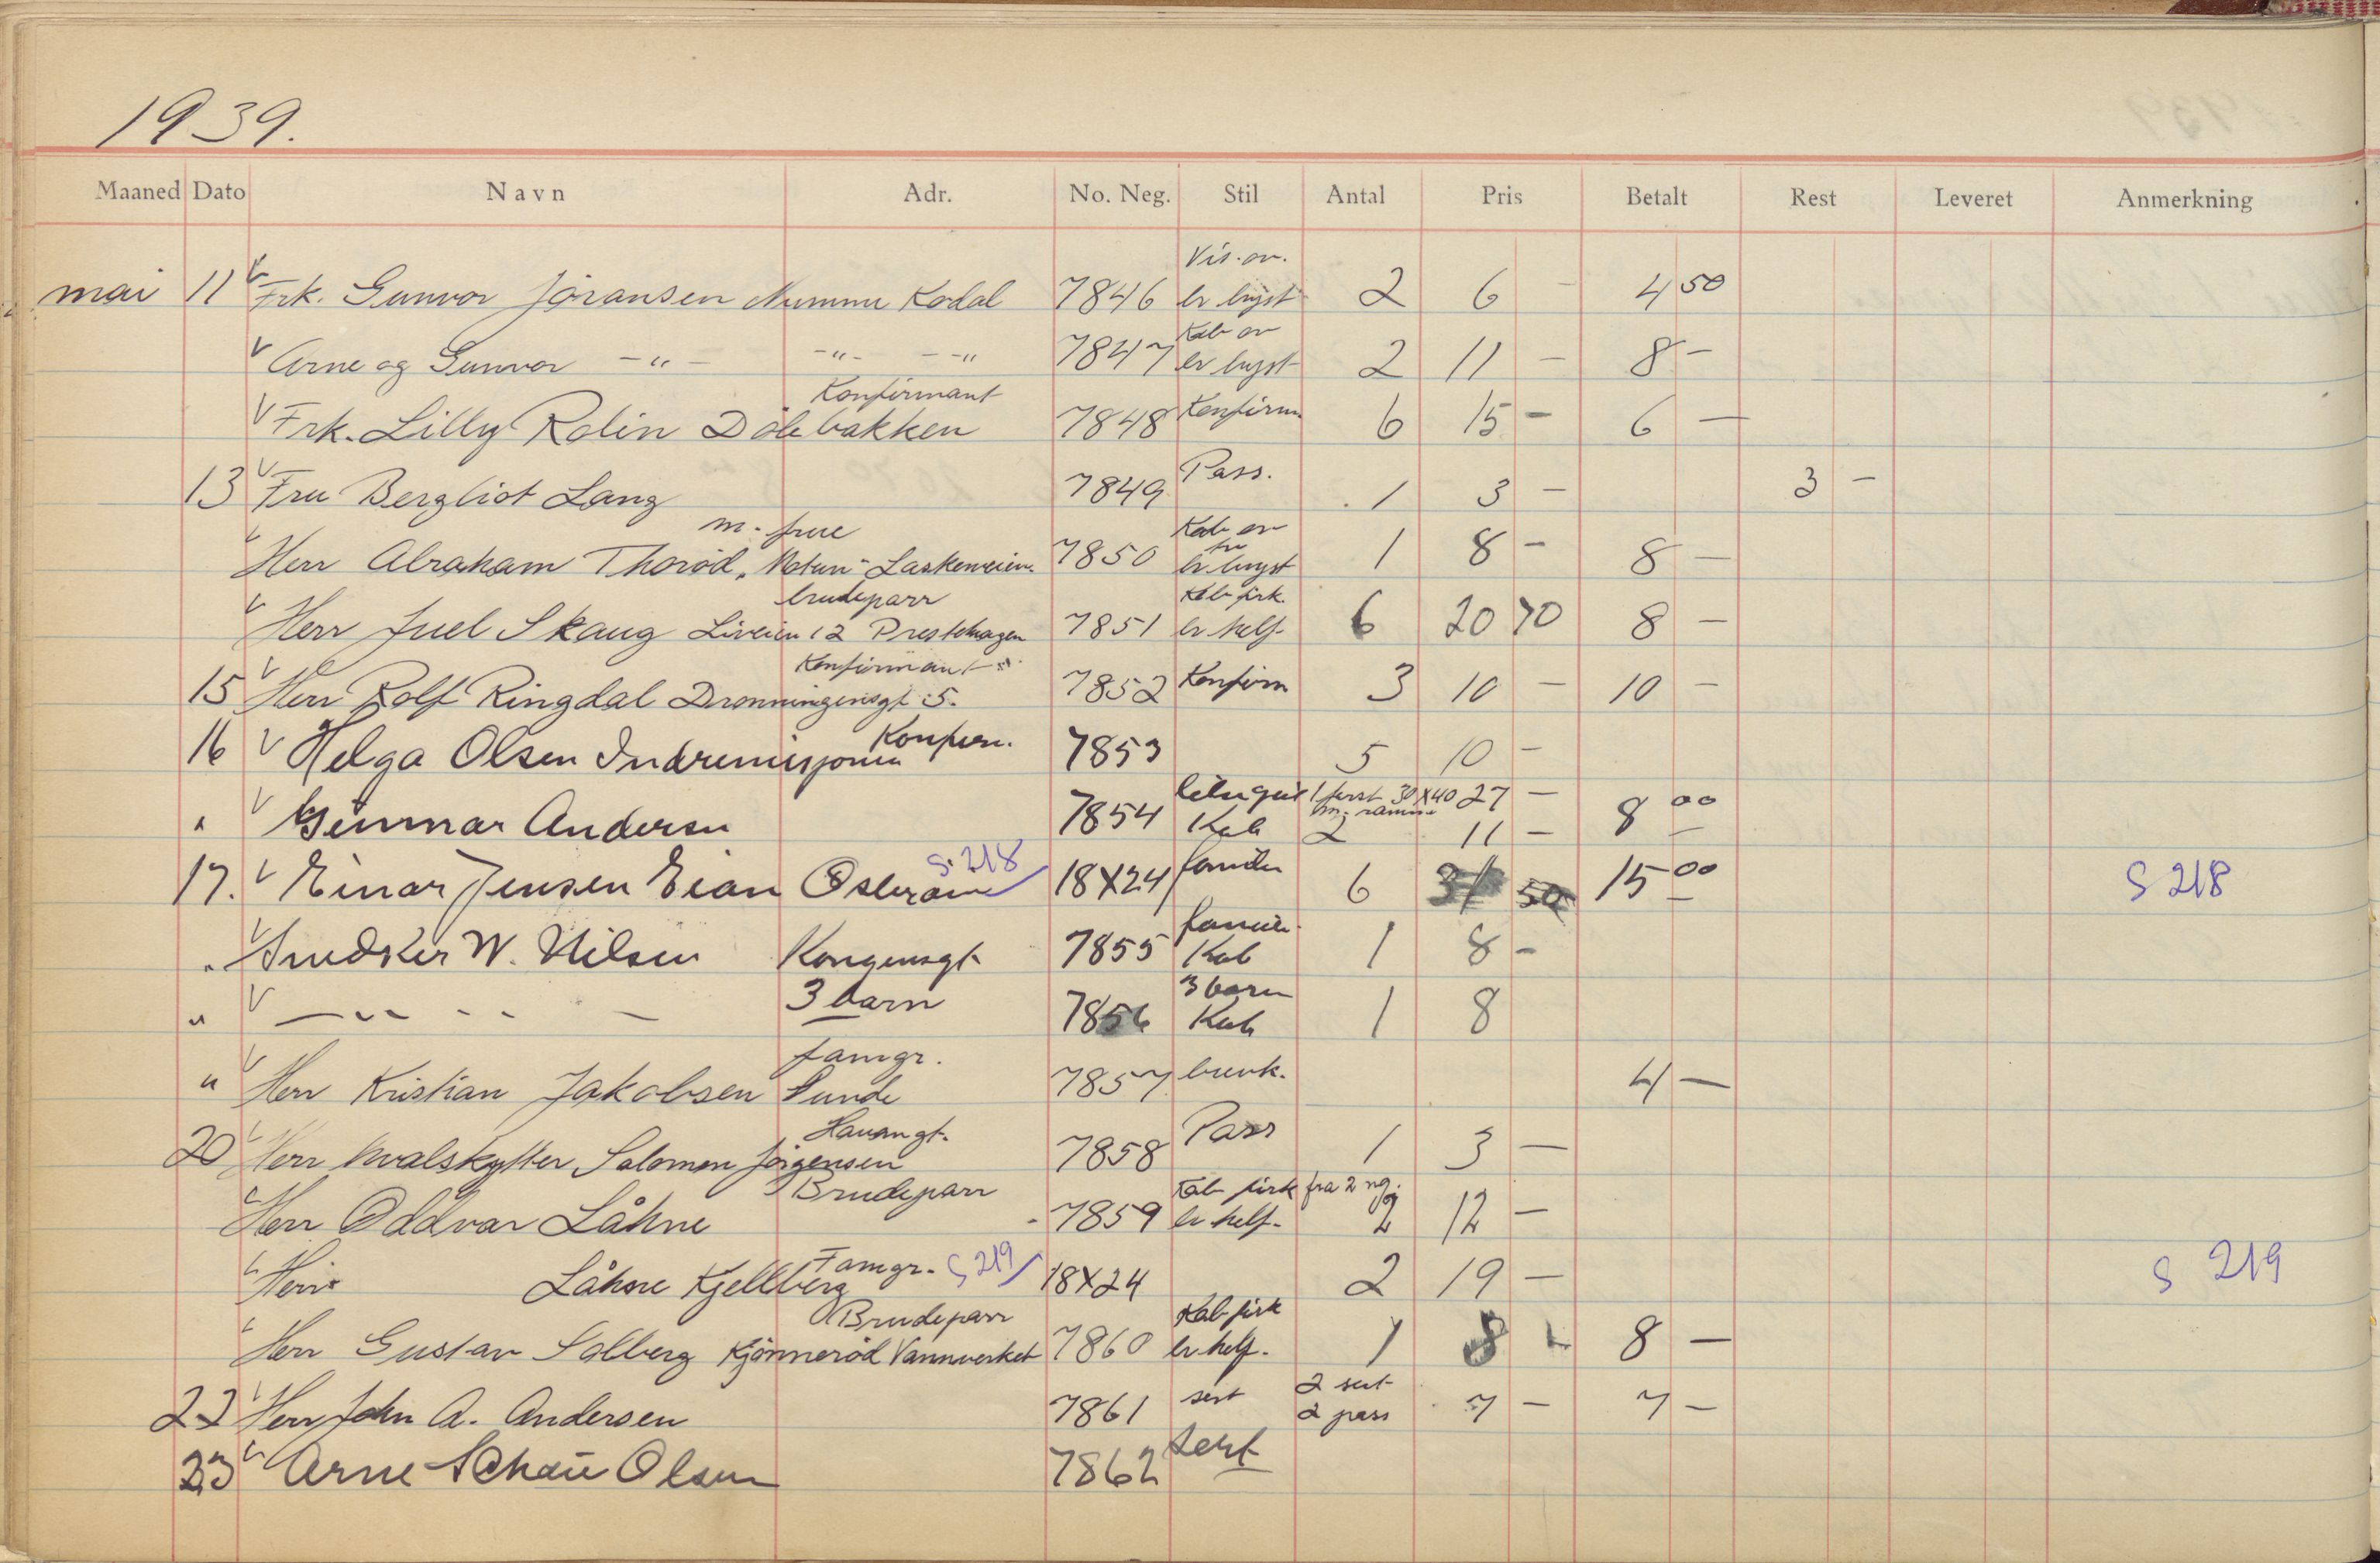 1939.
Maaned Dato Navn Adr. No. Neg. Stil Antal Pris Betalt Rest Leveret Anmerkning
Vis. ov.
mai 11 V Frk. Gunvor Joransen Kodal 7846 2 6 - 4 50
Kab ov
V Arne og Gunvor - " - - " - - " 7847 2 11 - 8 -
Konfirmant
V Frk. Lilly Rolin Dölebakken 7848 Konfirm 6 15 - 6 -
13 V Fru Bergliot Lang 7849 Pass. 1 3 - 3 -
m. frue Kab ov
V Herr Abraham Thorød, 7850 1 8 - 8 -
brudeparr Kab firk.
V Herr Juel Skaug Liveien 12 Prestehagen 7851 br. helf. 6 20 70 8 -
Konfirmant
15 V Herr Rolf Ringdal Dronningensgt 5. 7852 Konfirm 3 10 - 10 -
Konfirm.
16 V Helga Olsen Indremisjonen 7853 5 10 -
30X40 27 -
" V Gunnar Andersen 7854 Kab m. ramme 2 11 - 8 00
S. 218
17. V Einar Jensen Eian 18X24 6 31 50 15 00 S 218
familie
" V W. Nilsen Kongensgt 7855 Kab 1 8 -
3 barn
" V - " - " - 3 barn 7856 Kab 1 8
famgr.
" V Herr Kristian Jakobsen Sunde 7857 brevk. 4 -
Havangt.
20 V Herr Hvalskytter Salomon Jörgensen 7858 Pass 1 3 -
Brudeparr Kab firk fra 2 ng.
V Herr Oddvar Låhne 7859 br helf. 2 12 -
Famgr. S 219
V Herr Låhne Kjellberg 18X24 2 19 - S 219
Brudeparr Kab firk
V Herr Gustav Solberg Kjönneröd Vannverket 7860 br. helf. 1 8 - 8 -
2 sert
22 V Herr John A. Andersen 7861 sert 2 pass 7 - 7 -
23 V Arne Schau Olsen 7862 sert